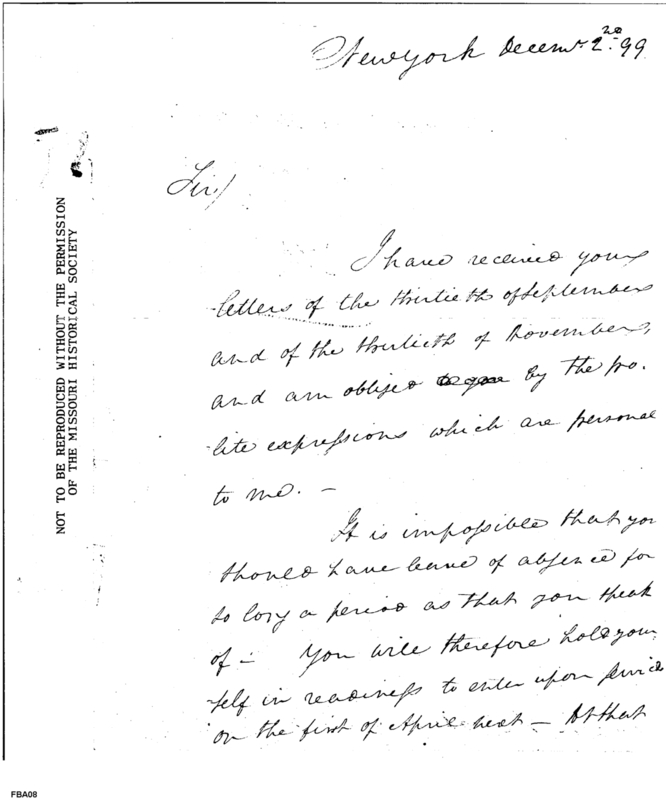 New York Decemr. 20 2. 99
NOT TO BE REPRODUCED WITHOUT THE PERMISSION
OF THE MISSOURI HISTORICAL SOCIETY
Sir/
I have received your
letters of the thirtieth of September
and of the thirtieth of November,
and am obliged by the po-
lite expressions which are personal
to me. –
It is impossible that you
should have leave of absence for
so long a period as that you speak
of – You will therefore hold your
self in readiness to enter upon service
on the first of April next – At that
FBA08